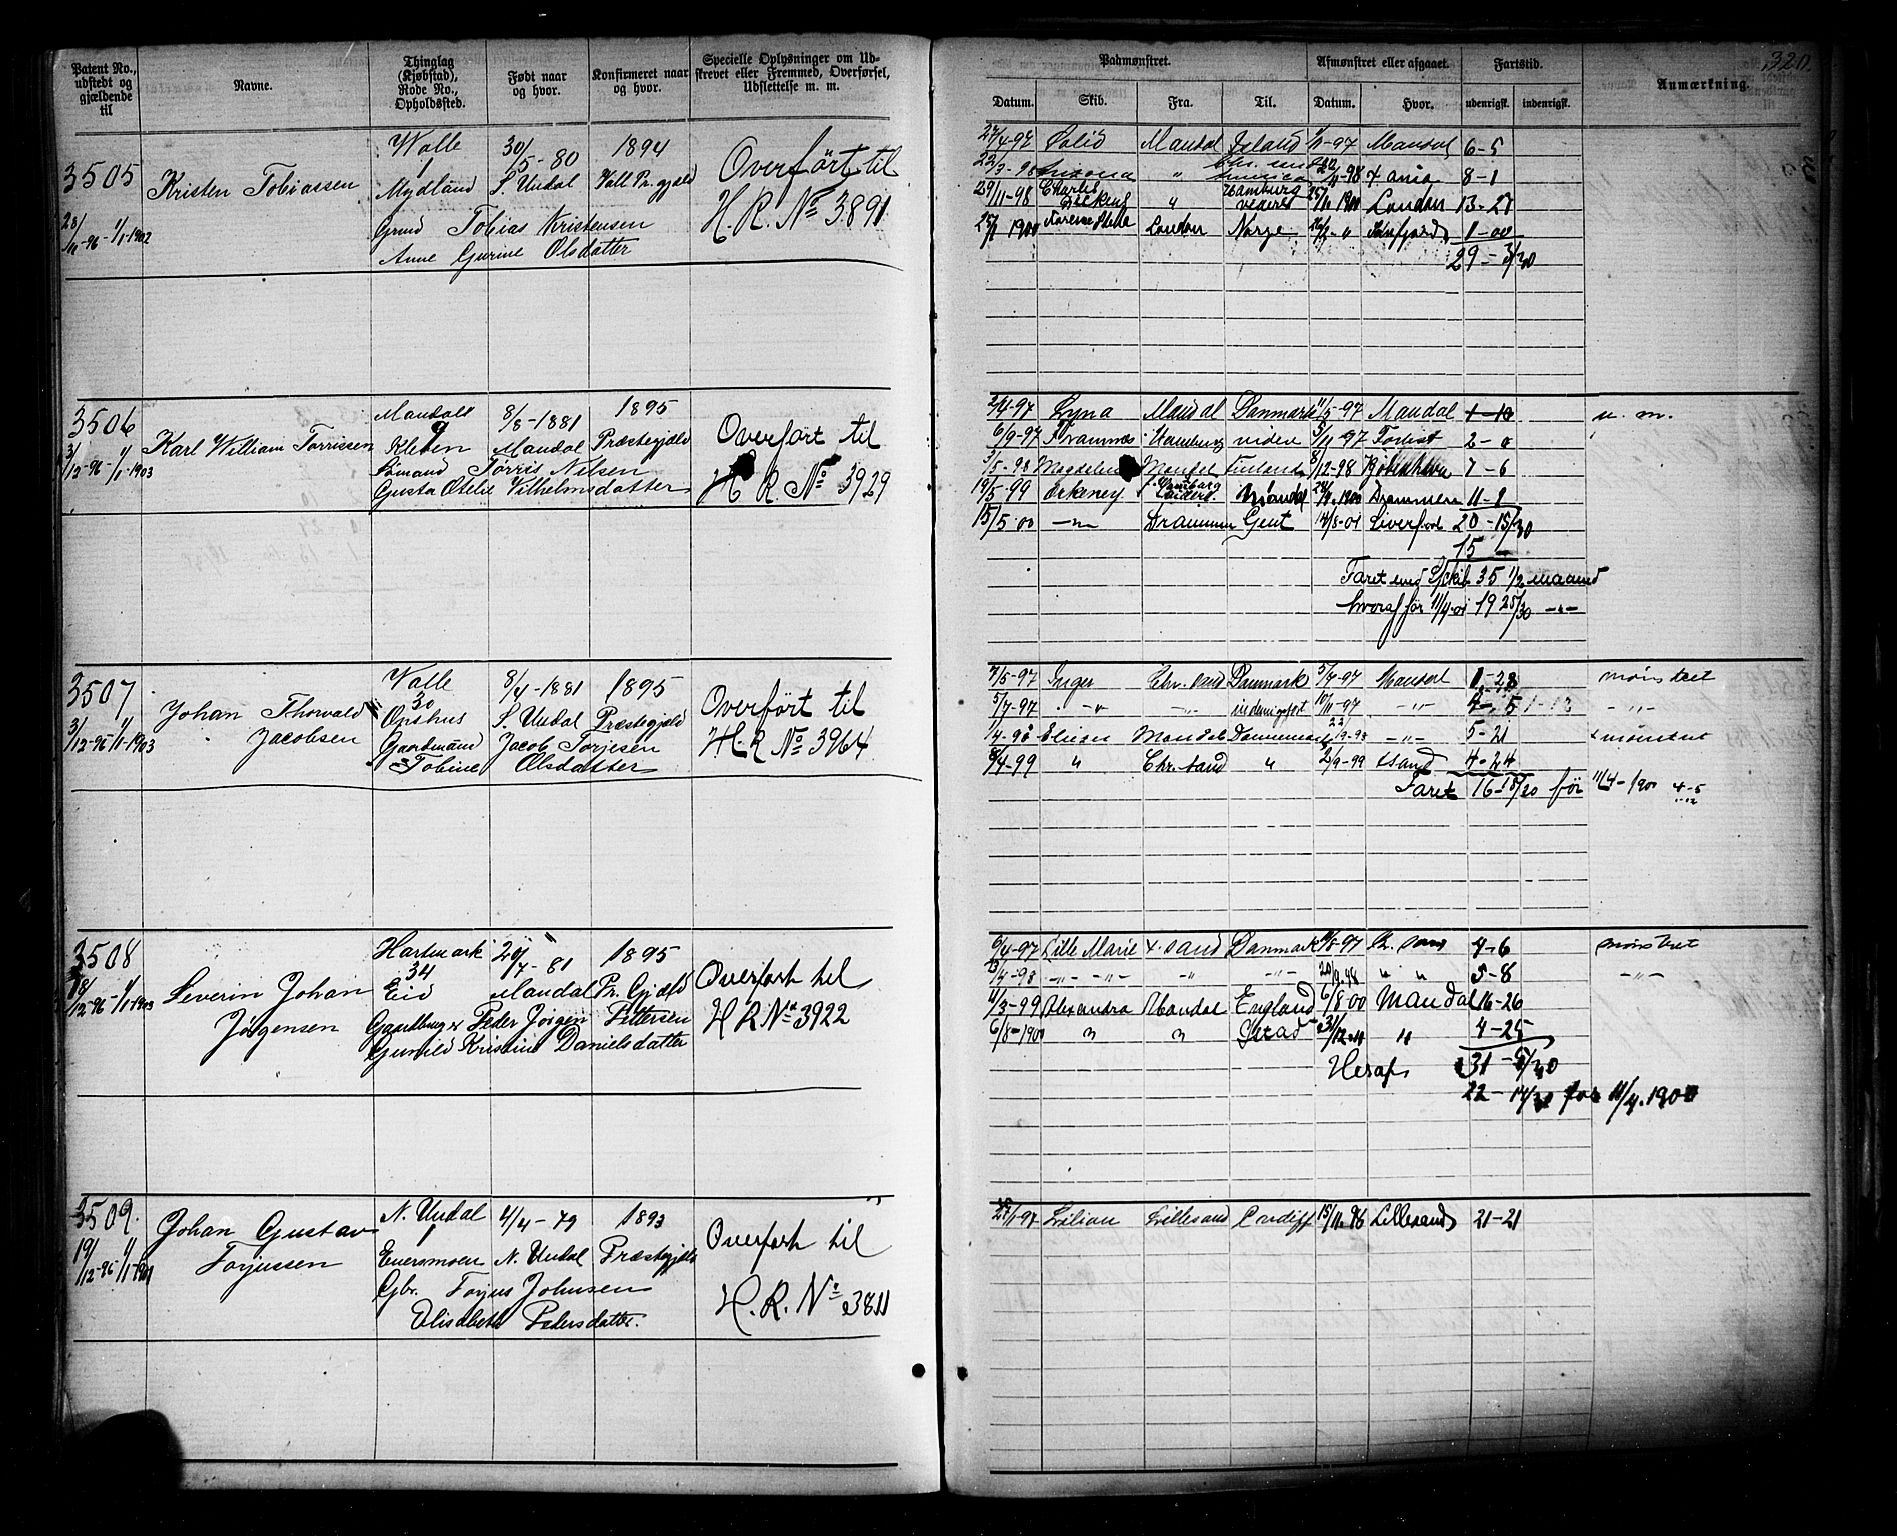 320.
Patent No., udstedt og gjældende til
Navne.
Thinglag (Kjøbstad), Rode No., Opholdssted.
Født naar og hvor.
Konfirmeret naar og hvor.
Specielle Oplysninger om Udskrevet eller Fremmed, Overførsel, Udslettelse m. m.
Paamønstret.
Datum. Skib. Fra. Til.
Afmønstret eller afgaaet.
Datum. Hvor.
Fartstid.
udenrigsk. indenrigsk.
Anmærkning.
3505
28/11-96-1/1-1902
Kristen Tobiassen
Walle 30/5-80 1894
1
Mydland S. Undal Vall Pr. gjæld
Grmd Tobias Kristensen
Anne Gurine Olsdatter
Overført til
H. R. No 3891
27/4-97 Solid Mandal Island 1/11-97 Mandal 6-5
22/3-98 Arizona " Chr. sund America 22/11-98 X ania 8-1
29/11-98 Charles Dickens " Hamburg videre 25/11 1900 London 13-21
London Norge 1-00
29-3/30
3506
3/12-96-1/1-1903
Karl William Torrissen
Mandals 8/8-1881 1895
9
Kleven Mandal Præstegjæld
Sømand Tørris Nilsen
Gusta Otelie Vilhelmsdatter
Overført til
H. R. No 3929
2/4-97 Lyna Mandal Danmark 11/5-97 Mandal 1-10 u. m.
6/9-97 Framnæs Hamburg videre 5/11-97 Forlist 2-0
3/5-98 Mandal Finland 8/12-98 Kjøbenhavn 7-6
19/5-99 Orkney Mandal Drammen 11-2
15/5 00 -"- Drammen Gent 14/8-01 Liverpool 20-15/30
15 -
Faret med S/Skib 35 1/2 maaned
hvoraf før 11/4-01 19 25/30 -"-
3507
3/12-96-1/1-1903
Johan Thorvald
Jacobsen
Walle 8/4-1881 1895
30
Opshus S. Undal Præstegjæld
Gaardmand Jacob Torjesen
Tobine Olsdatter
Overført til
H. R No 3964
7/5-97 Inger Chr. sand Danmark 5/7-97 Mandal 1-28 mønstret
5/7-97 -"- -"- indenrigsfart 10/11-97 -"- 4-5 1-12 -"-
1/4-98 Mandal Danmark -"- 5-21 mønstret
8/4-99 " Chr. sand " 2/9-99 Xsand 4-24
Faret 16-18/30 før 11/4-1900 4-5
1-12
3508
18/12-96-1/1-1903
Severin Johan
Jørgensen
Hartmark 20/7-81 1895
34
Eid Mandal Pr. Gjæld
Gaardbruger Peder Jørgen Pettersen
Gunild Kristine Danielsdatter
Overført til
H R No 3922
6/4-97 Lille Marie X. sand Danmark 11/8-97 Chr. sand 4-6 mønstret
13/4-98 -"- -"- -"- -"- 20/9.98 " " 5-8 -"-
11/3-99 Alexandra Mandal England 6/8 00 Mandal 16-26
6/8-1900 " " 31/12-00 " 4-25
Heraf 31-5/30
22-14/30 før 11/4.1900
3509.
19/12-96-1/1-1901
Johan Gustav
Torjussen
N. Undal 4/4-79 1893
Eversmoen N. Undal Præstegjæld
Gbr. Torjus Johnsen
Elisabeth Pedersdatter.
Overført til
H. R. No 3811
25/1-97 Lilian Lillesand Cardiff 15/11-98 Lillesand 21-21